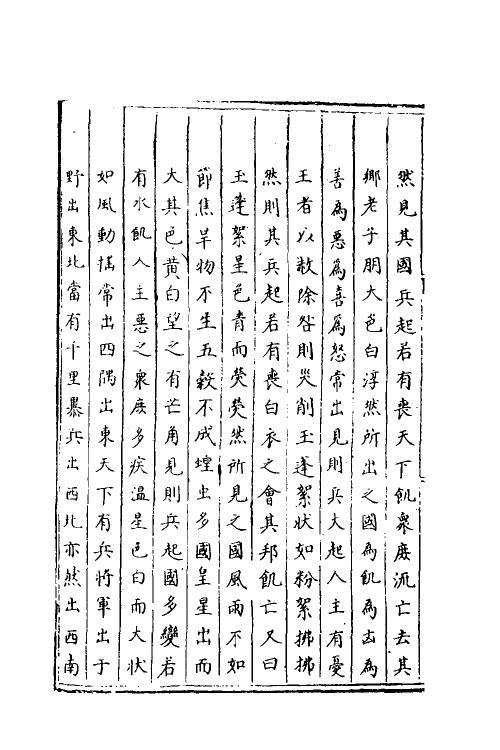 然見其國兵起若有喪天下飢衆庶流亡去其
鄉老子明大色白淳然所出之國為飢為凶為
善為惡為喜為怒常出見則兵大起人主有憂
王者以赦除咎則災削王蓬絮狀如粉絮拂拂
然則其兵起若有喪白衣之會其邦飢亡又曰
王蓬絮星色青而熒熒然所見之國風雨不如
節焦旱物不生五穀不成蝗虫多國皇星出而
大其色黄白望之有芒角見則兵起國多變若
有水飢人主惡之衆庶多疾温星色白而大狀
如風動揺常出四隅出東天下有兵將軍出于
野出東北當有千里暴兵出西北亦然出西南